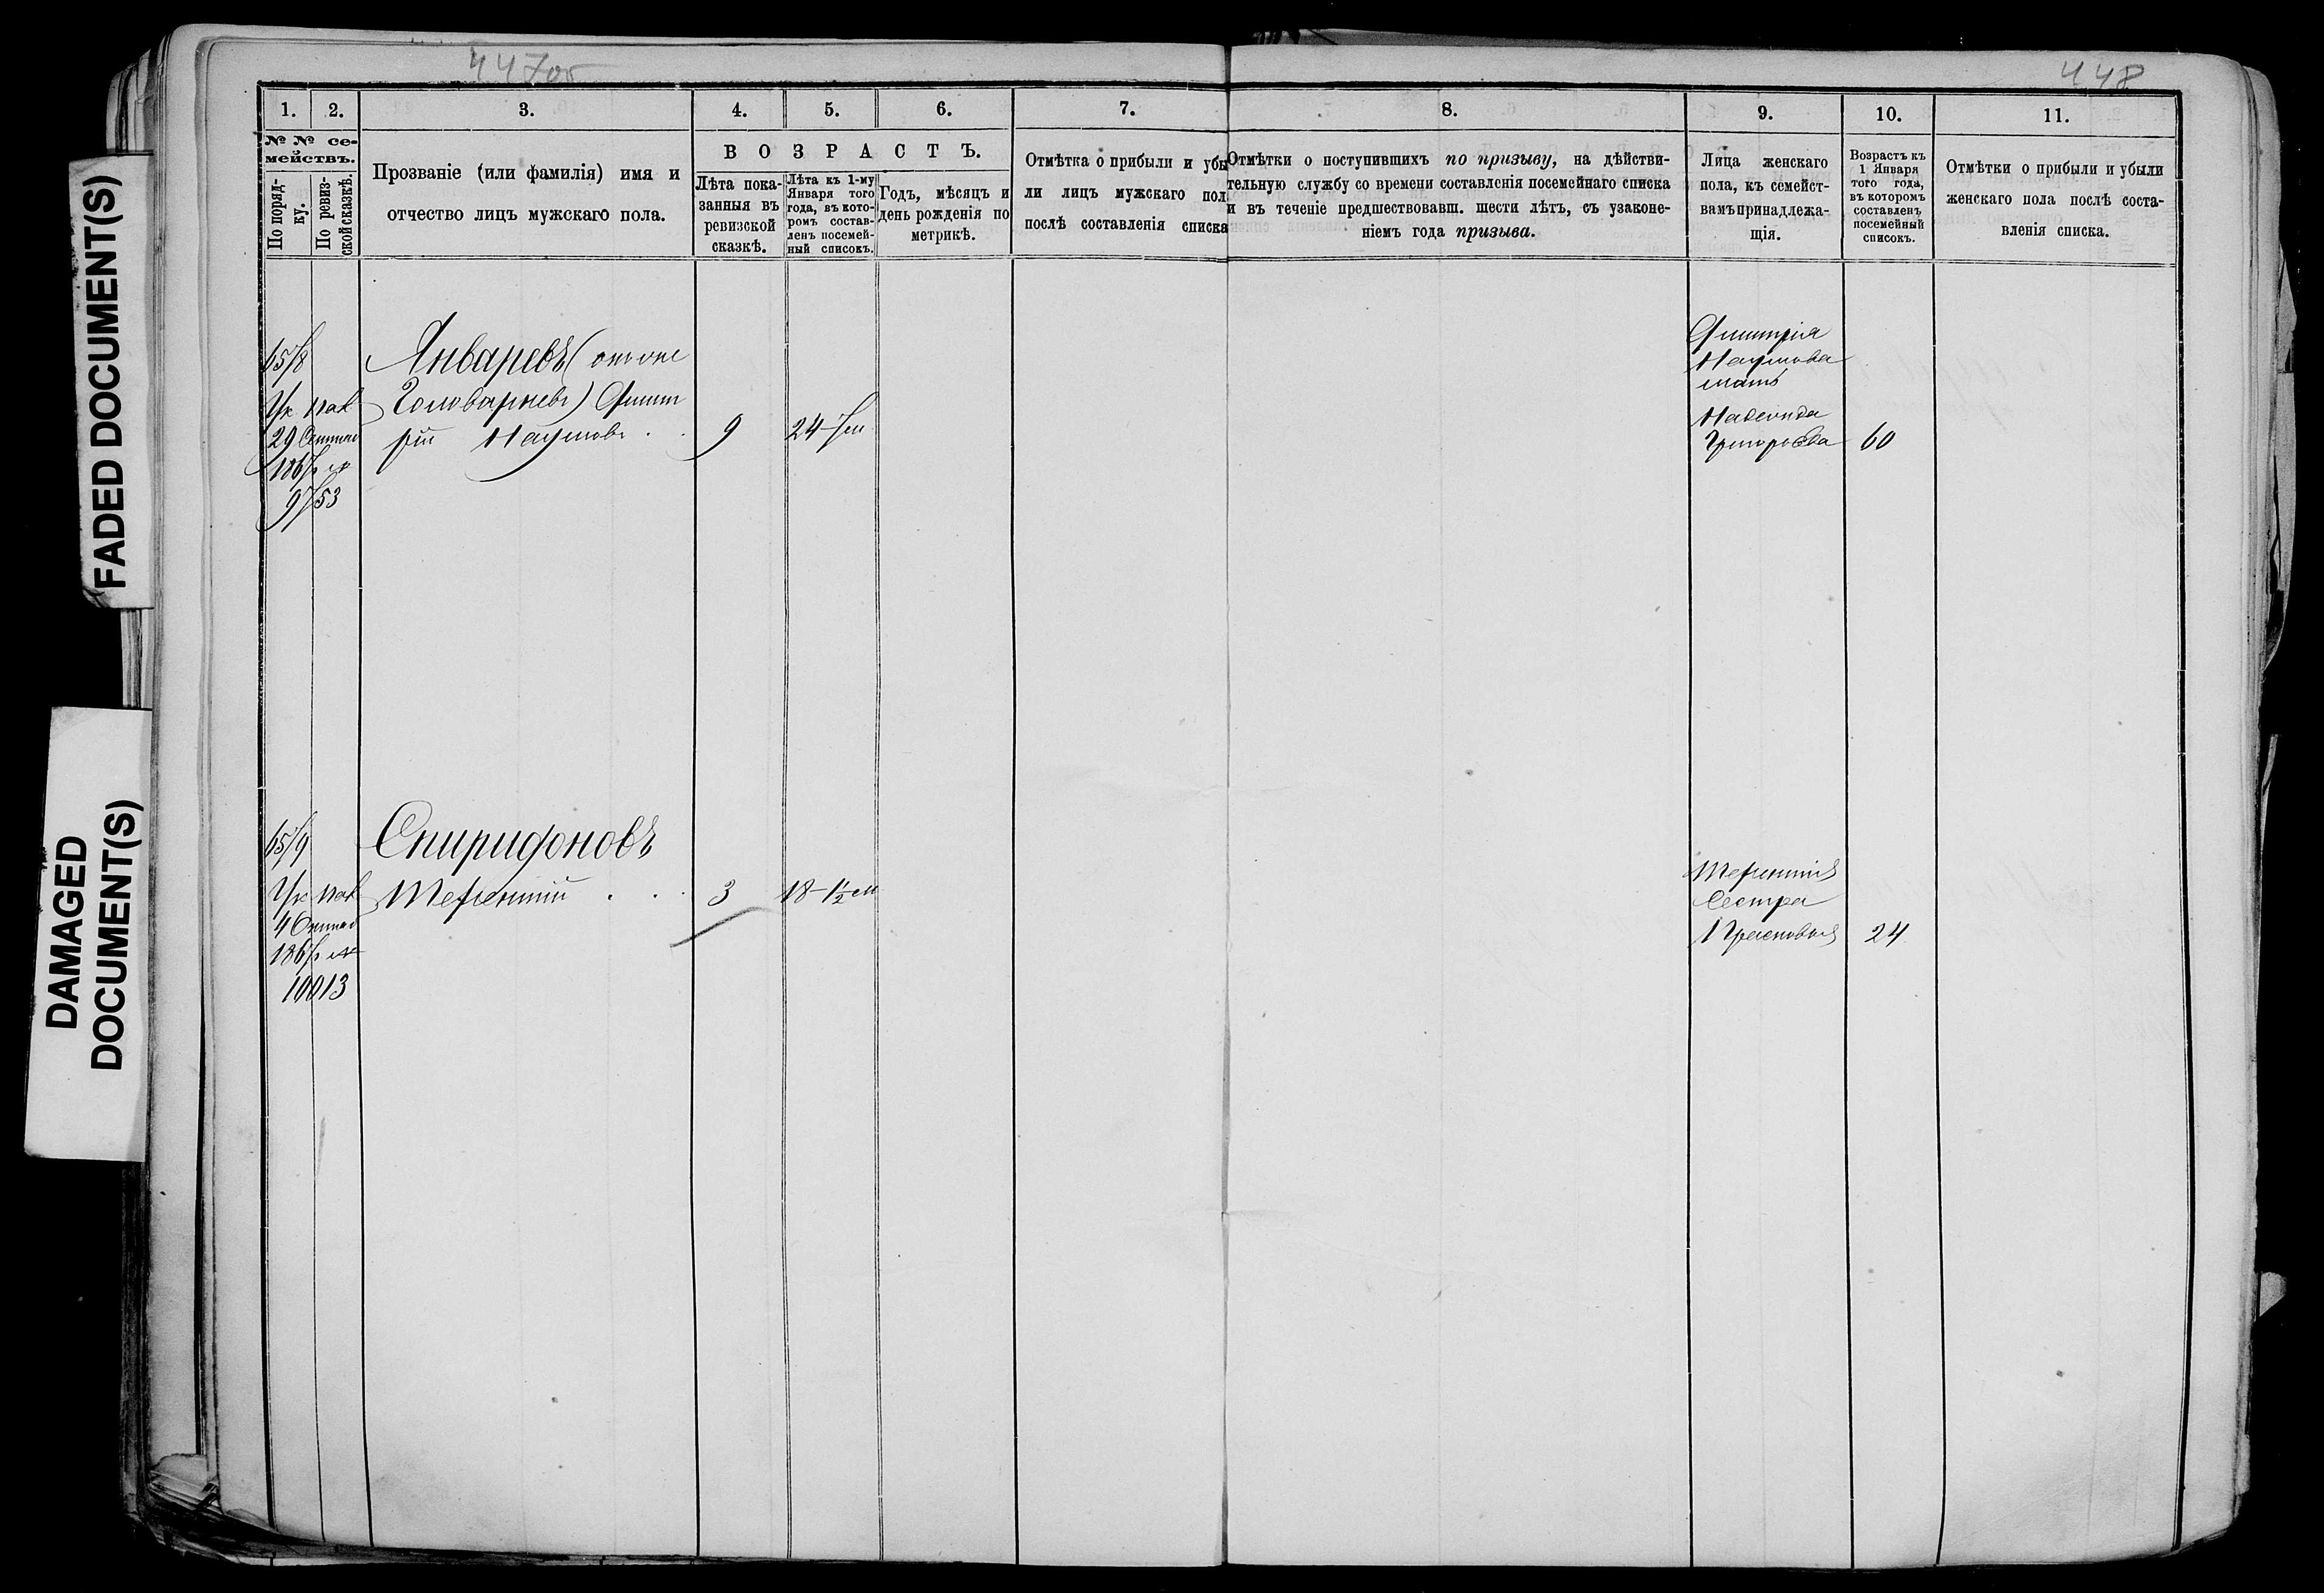 447об
448
1.
2.
3.
4.
5.
6.
7.
8.
9.
10.
11.
№ № се-
мействъ.
По поряд-
ку.
По ревиз-
ской сказкѣ.
Прозваніе (или фамилія) имя и
отчество лицъ мужскаго пола.
ВОЗРАСТЪ.
Лѣта пока-
занныя въ
ревизской
сказкѣ.
Лѣта къ 1-му
Января того
года, въ кото-
ромъ состав-
ленъ посемей-
ный списокъ.
Годъ, мѣсяцъ и
день рожденія по
метрикѣ.
Отмѣтка о прибыли и убы
ли лицъ мужскаго пол
послѣ составленія списка
Отмѣтки о поступившихъ по призыву, на дѣйстви-
тельную службу со времени составленія посемейнаго списка
и въ теченіе предшествовавш. шести лѣтъ, съ узаконе-
ніемъ года призыва.
Лица женскаго
пола, къ семейст-
вамъ принадлежа-
щія.
Возрастъ къ
1 Января
того года,
въ которомъ
составленъ
посемейный
списокъ.
Отмѣтки о прибыли и убыли
женскаго пола послѣ соста-
вленія списка.
658
Ук каз
29
9753
Январевъ (онъ же
Головарневъ) Дмит
рій Наумовъ
9
24
Дмитрія
Наумова
мать
Надежда
Григорьева
60
659
Ук каз
4
10013
Спиридоновъ
Терентій
3
18-1½ м
Терентія
Сестра
Прасковья
24
FADED DOCUMENT(S)
DAMAGED
DOCUMENT(S)